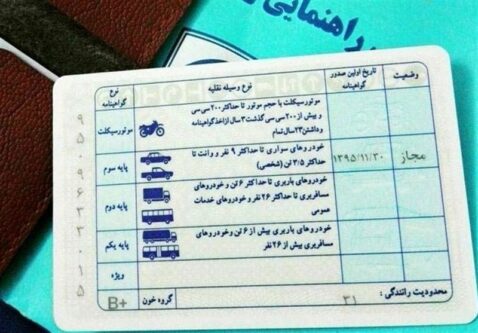 راهنمایی
نوع گواهینامه
نوع وسیله نقلیه
تاریخ اولین صدور گواهینامه
وضعیت
موتورسیکلت
موتورسیکلت با حجم موتور تا حداکثر ۲۰۰ سی سی
و بیش از ۲۰۰ سی سی گذشت ۳ سال از اخذ گواهینامه
و داشتن ۲۳ سال تمام
پایه سوم
خودروهای سواری تا حداکثر ۹ نفر و وانت تا
حداکثر ۳/۵ تن (شخصی)
۱۳۹۵/۱۱/۳۰
مجاز
پایه دوم
خودروهای باربری تا حداکثر ۶ تن و خودروهای
مسافربری تا حداکثر ۲۶ نفر و خودروهای خدمات
عمومی
پایه یکم
خودروهای باربری بیش از ۶ تن و خودروهای
مسافربری بیش از ۲۶ نفر
ویژه
گروه خون : B+
محدودیت رانندگی : ۳۱